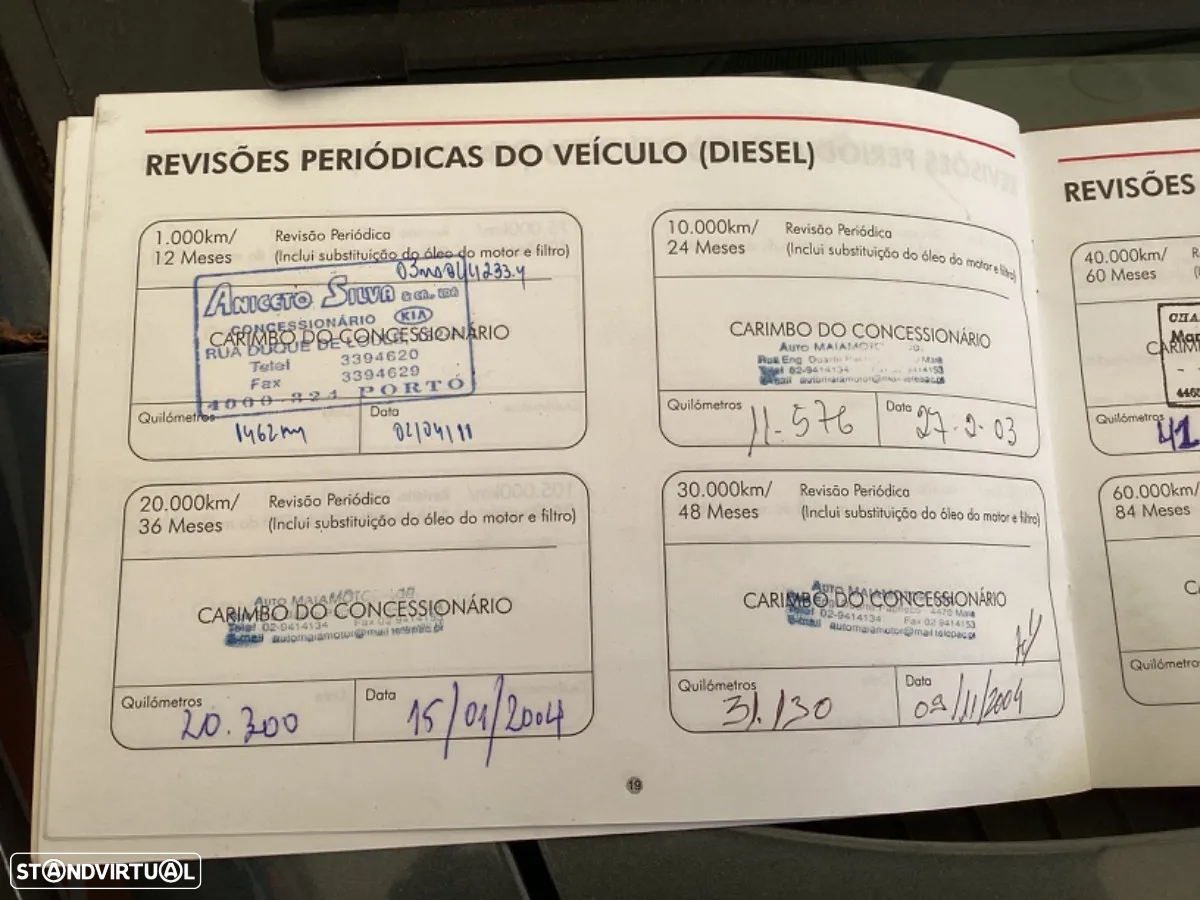 REVISÕES PERIÓDICAS DO VEÍCULO (DIESEL)
1.000km/
12 Meses
Revisão Periódica
(Inclui substituição do óleo do motor e filtro)
ANICETO SILVA & CA., LDA
CONCESSIONÁRIO KIA
CARIMBO DO CONCESSIONÁRIO
RUA DUQUE DE
Telef 3394620
Fax 3394629
4000-324 PORTO
Quilómetros
1462km
Data
02/04/11
10.000km/
24 Meses
Revisão Periódica
(Inclui substituição do óleo do motor e filtro)
CARIMBO DO CONCESSIONÁRIO
Auto MAIAMOTOR
Rua Eng. Duarte Maia
Telef 02-9414134 Fax 02 9414153
E-mail automaiamotor@mail.telepac.pt
Quilómetros
11.576
Data
27.2.03
20.000km/
36 Meses
Revisão Periódica
(Inclui substituição do óleo do motor e filtro)
AUTO MAIAMOTOR
CARIMBO DO CONCESSIONÁRIO
Telef 02-9414134 Fax 02 9414153
E-mail automaiamotor@mail.telepac.pt
Quilómetros
20.300
Data
15/01/2004
30.000km/
48 Meses
Revisão Periódica
(Inclui substituição do óleo do motor e filtro)
AUTO MAIAMOTOR
CARIMBO DO CONCESSIONÁRIO
4470 Maia
Telef 02-9414134 Fax 02 9414153
E-mail automaiamotor@mail.telepac.pt
Quilómetros
31.130
Data
09/11/2004
19
REVISÕES
40.000km/
60 Meses
Quilómetros
41
60.000km/
84 Meses
Quilómetros
STANDVIRTUAL